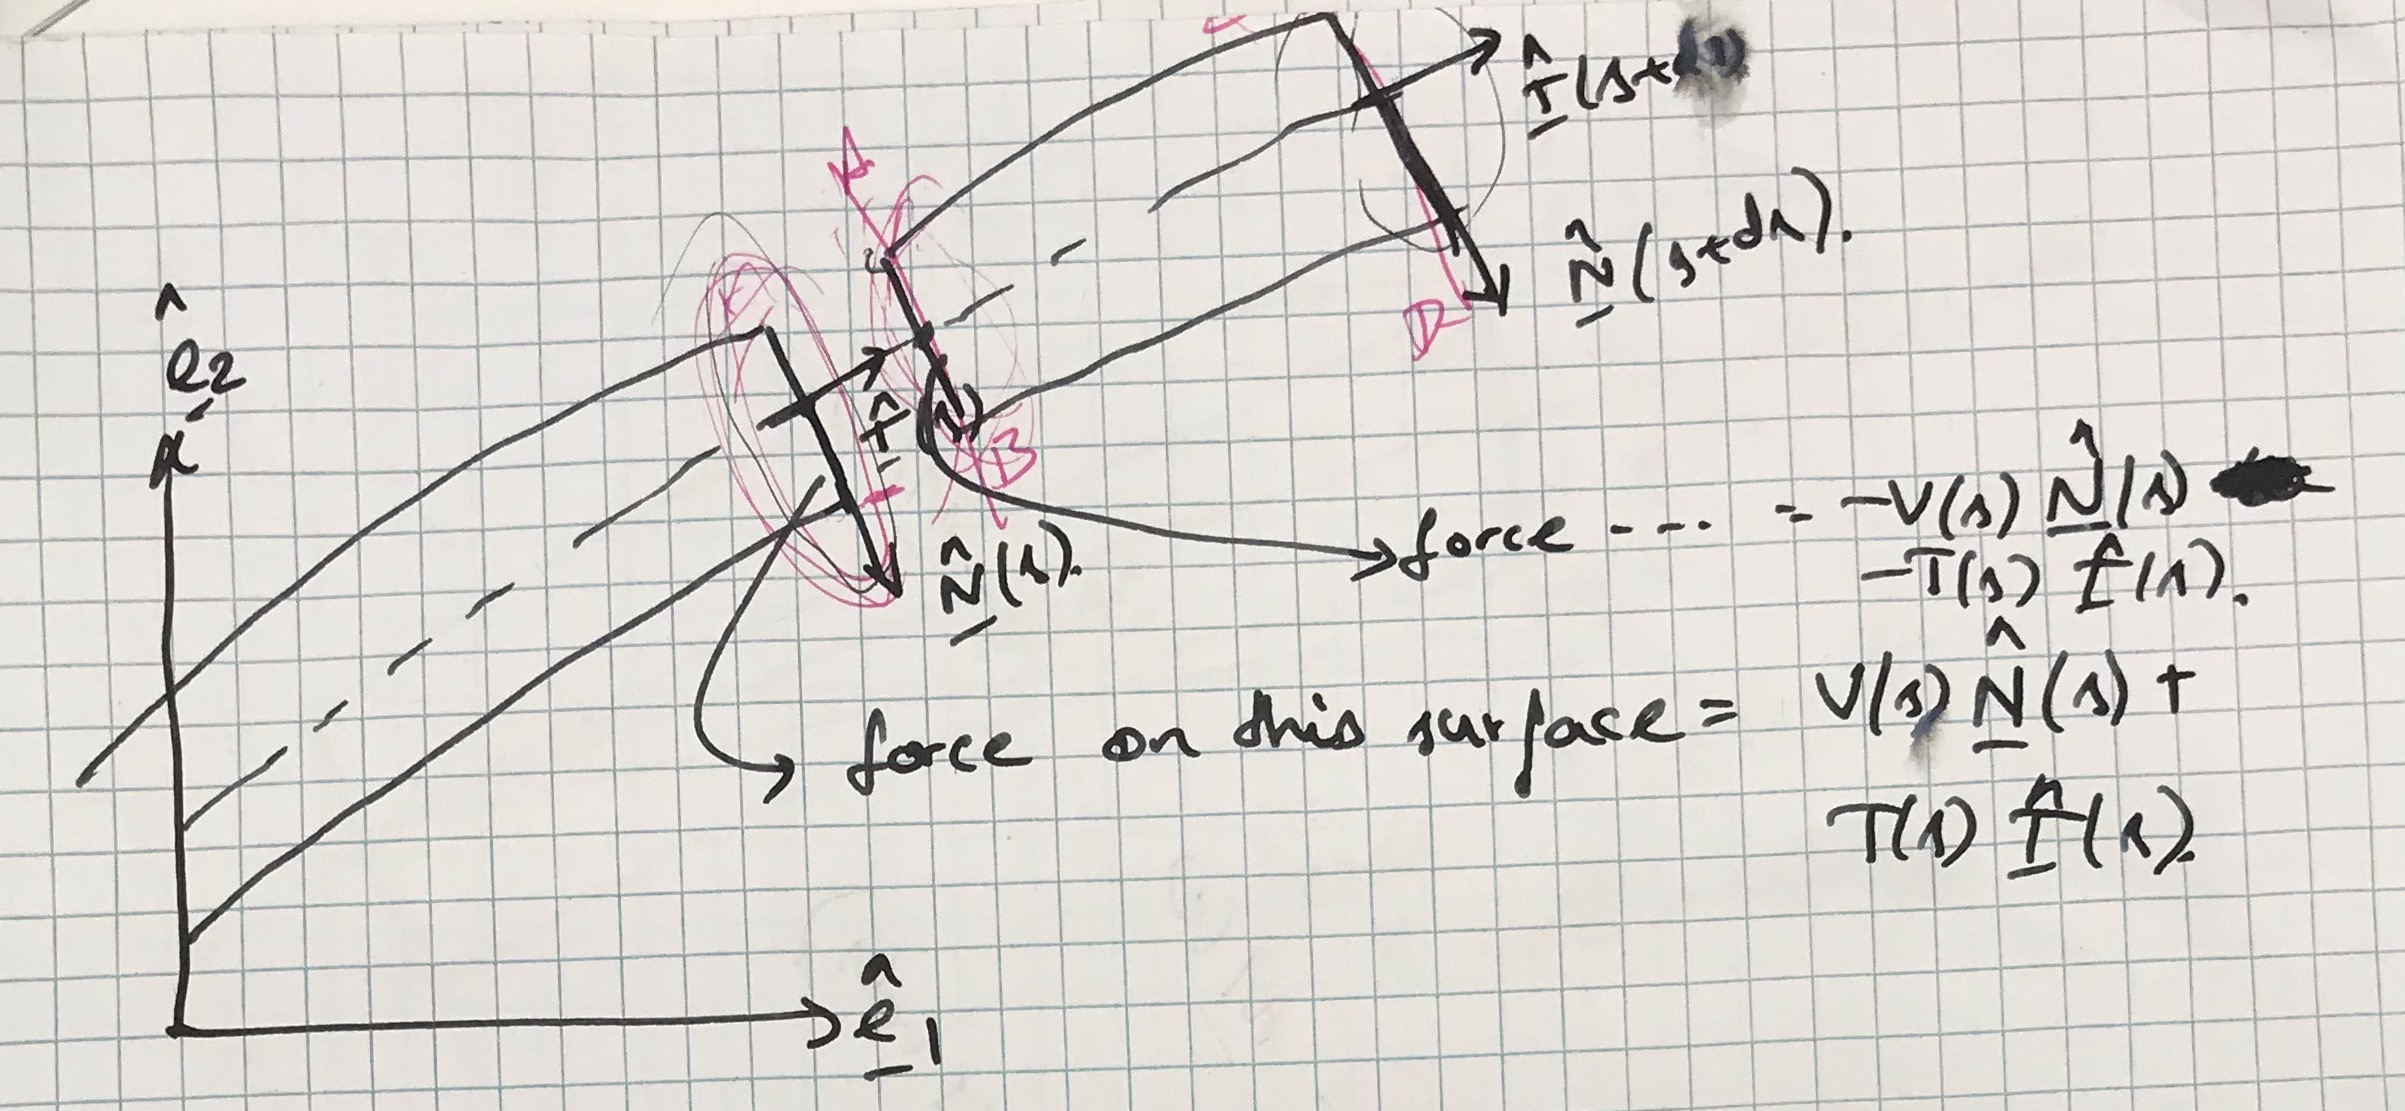 T̂(s+ds)
N̂(s+ds).
A
ê2
T̂(s)
B
D
N̂(s).
force - - - - = -V(s) N̂(s)
-T(s) t̂(s).
force on this surface = V(s) N̂(s) +
T(s) t̂(s).
ê1